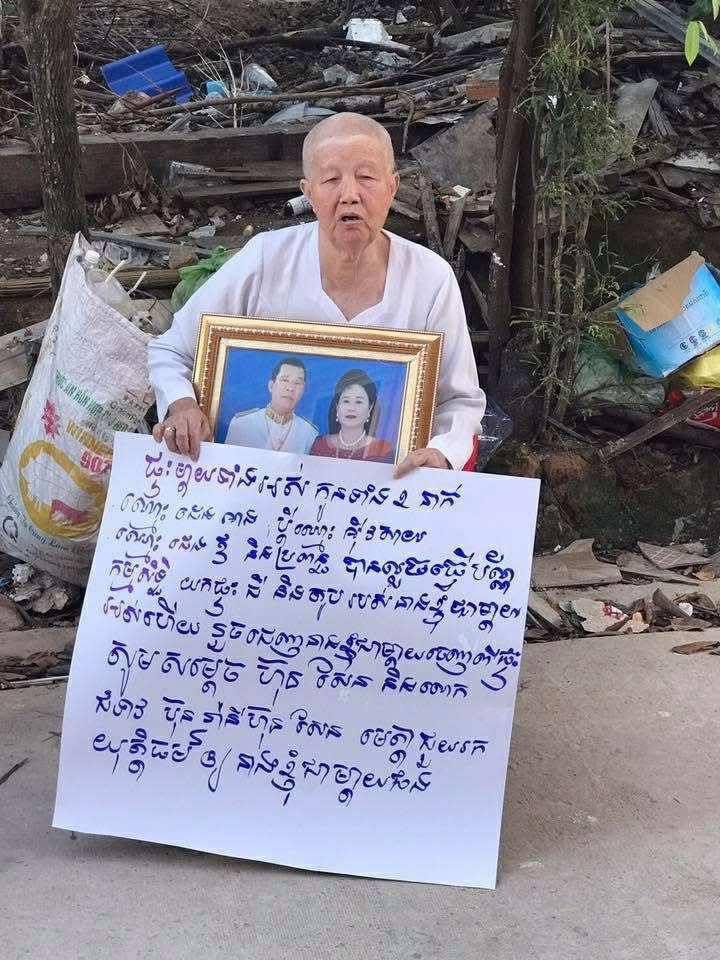 ផ្ទះម្តាយទាំងអស់ កូនទាំង ២ នាក់
ឈ្មោះ ដេង អាន ប្តីឈ្មោះ
ឈ្មោះ ដេង ថូ និងប្រពន្ធ បានលួចធ្វើប័ណ្ណ
កម្មសិទ្ធិ យកផ្ទះ ដី និងតូប របស់នាងខ្ញុំជាម្តាយ
អស់ហើយ នួចដេញនាងខ្ញុំជាម្តាយចេញពីផ្ទះ
សូមសម្តេច ហ៊ុន សែន និងលោក
ជំទាវ ប៊ុន រ៉ានីហ៊ុន សែន មេត្តាជួយរក
យុត្តិធម៌ឲ្យ នាងខ្ញុំជាម្តាយផង